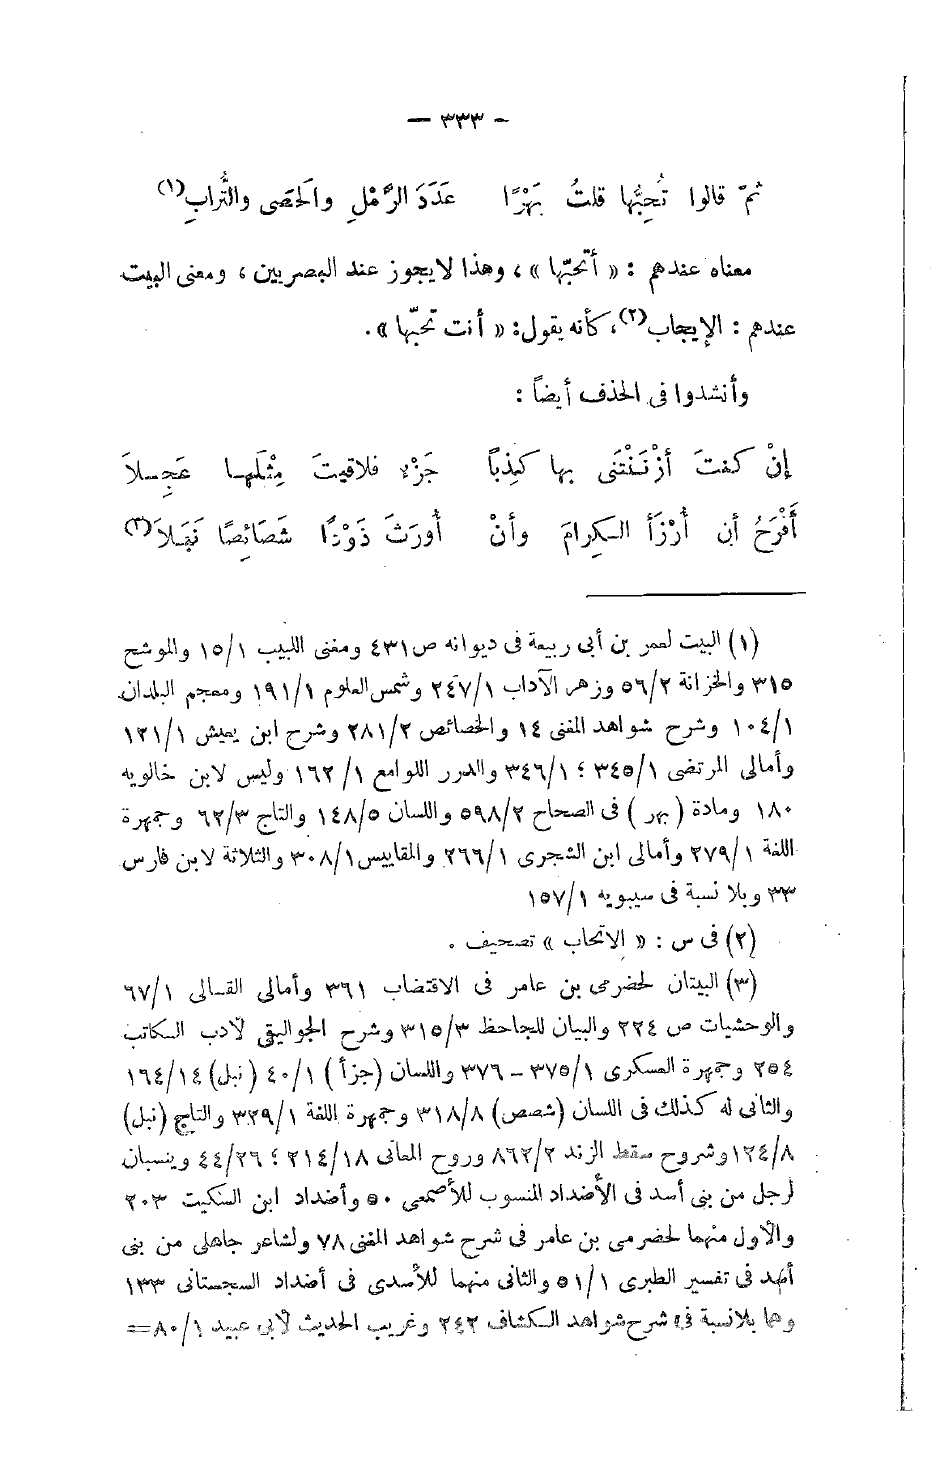 — ٣٣٣ —
ثمّ قالوا تُحِبُّها قلتُ بَهْرًا عَدَدَ الرَّمْلِ والحَصَى والتُّرابِ(١)
معناه عندهم : « أتحبّها » ، وهذا لايجوز عند البصريين ، ومعنى البيت
عندهم : الإيجاب(٢)، كأنه يقول: « أنت تحبّها » .
وأنشدوا فى الحذف أيضاً :
إنْ كنتَ أزْنَنْتَنى بها كَذِبًا جَزْءُ فلاقيتَ مِثْلَها عَجِـلاَ
أَفْرَحُ أن أُرْزَأَ الكِرامَ وأنْ أُورَثَ ذَوْدًا شَصَائِصًا نَبَلاَ(٣)
(١) البيت لعمر بن أبى ربيعة فى ديوانه ص ٤٣١ ومغنى اللبيب ١٥/١ والموشح
٣١٥ والخزانة ٥٦/٢ وزهر الآداب ٢٤٧/١ وشمس العلوم ١٩١/١ ومعجم البلدان
١٠٤/١ وشرح شواهد المغنى ١٤ والخصائص ٢٨١/٢ وشرح ابن يعيش ١٢١/١
وأمالى المرتضى ٣٤٥/١ ؛ ٣٤٦/١ والدرر اللوامع ١٦٢/١ وليس لابن خالويه
١٨٠ ومادة ( بهر ) فى الصحاح ٥٩٨/٢ واللسان ١٤٨/٥ والتاج ٦٢/٣ وجمهرة
اللغة ٢٧٩/١ وأمالى ابن الشجرى ٢٦٦/١ والمقاييس ٣٠٨/١ والثلاثة لابن فارس
٣٣ وبلا نسبة فى سيبويه ١٥٧/١
(٢) فى س : « الاتحاب » تصحيف .
(٣) البيتان لحضرمى بن عامر فى الاقتضاب ٣٦١ وأمالى القالى ٦٧/١
والوحشيات ص ٢٢٤ والبيان للجاحظ ٣١٥/٣ وشرح الجواليقى لأدب الكاتب
٢٥٤ وجمهرة العسكرى ٣٧٥/١ – ٣٧٦ واللسان (جزأ ) ٤٠/١ (نبل) ١٦٤/١٤
والثانى له كذلك فى اللسان (شصص) ٣١٨/٨ وجمهرة اللغة ٣٢٩/١ والتاج (نبل)
١٢٤/٨ وشروح سقط الزند ٨٦٢/٢ وروح المعانى ٢١٤/١٨ ؛ ٤٤/٢٦ وينسبان
لرجل من بنى أسد فى الأضداد المنسوب للأصمعى ٥٠ وأضداد ابن السكيت ٢٠٣
والأول منهما لحضرمى بن عامر فى شرح شواهد المغنى ٧٨ ولشاعر جاهلى من بنى
أسد فى تفسير الطبرى ٥١/١ والثانى منهما للأسدى فى أضداد السجستانى ١٣٣
وهما بلانسبة فى شرح شواهد الكشاف ٢٤٢ وغريب الحديث لأبى عبيد ٨٠/١=